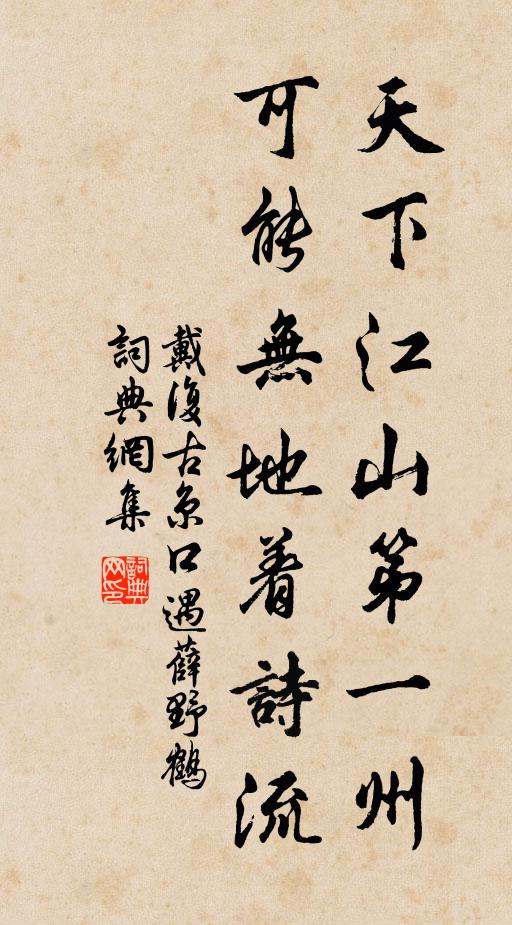 天下江山第一州
可能無地着詩流
戴復古京口遇薛野鶴
詞典網集
詞典网印